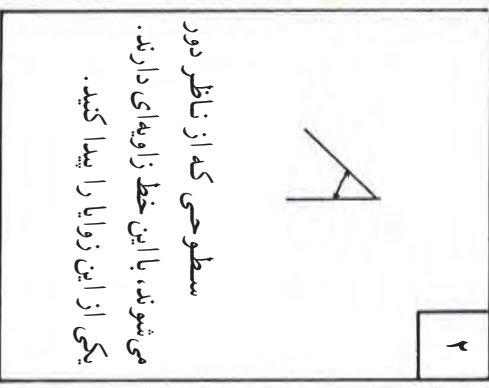 ۲
سطوحی که از ناظر دور
می‌شوند، با این خط زاویه‌ای دارند.
یکی از این زوایا را پیدا کنید.